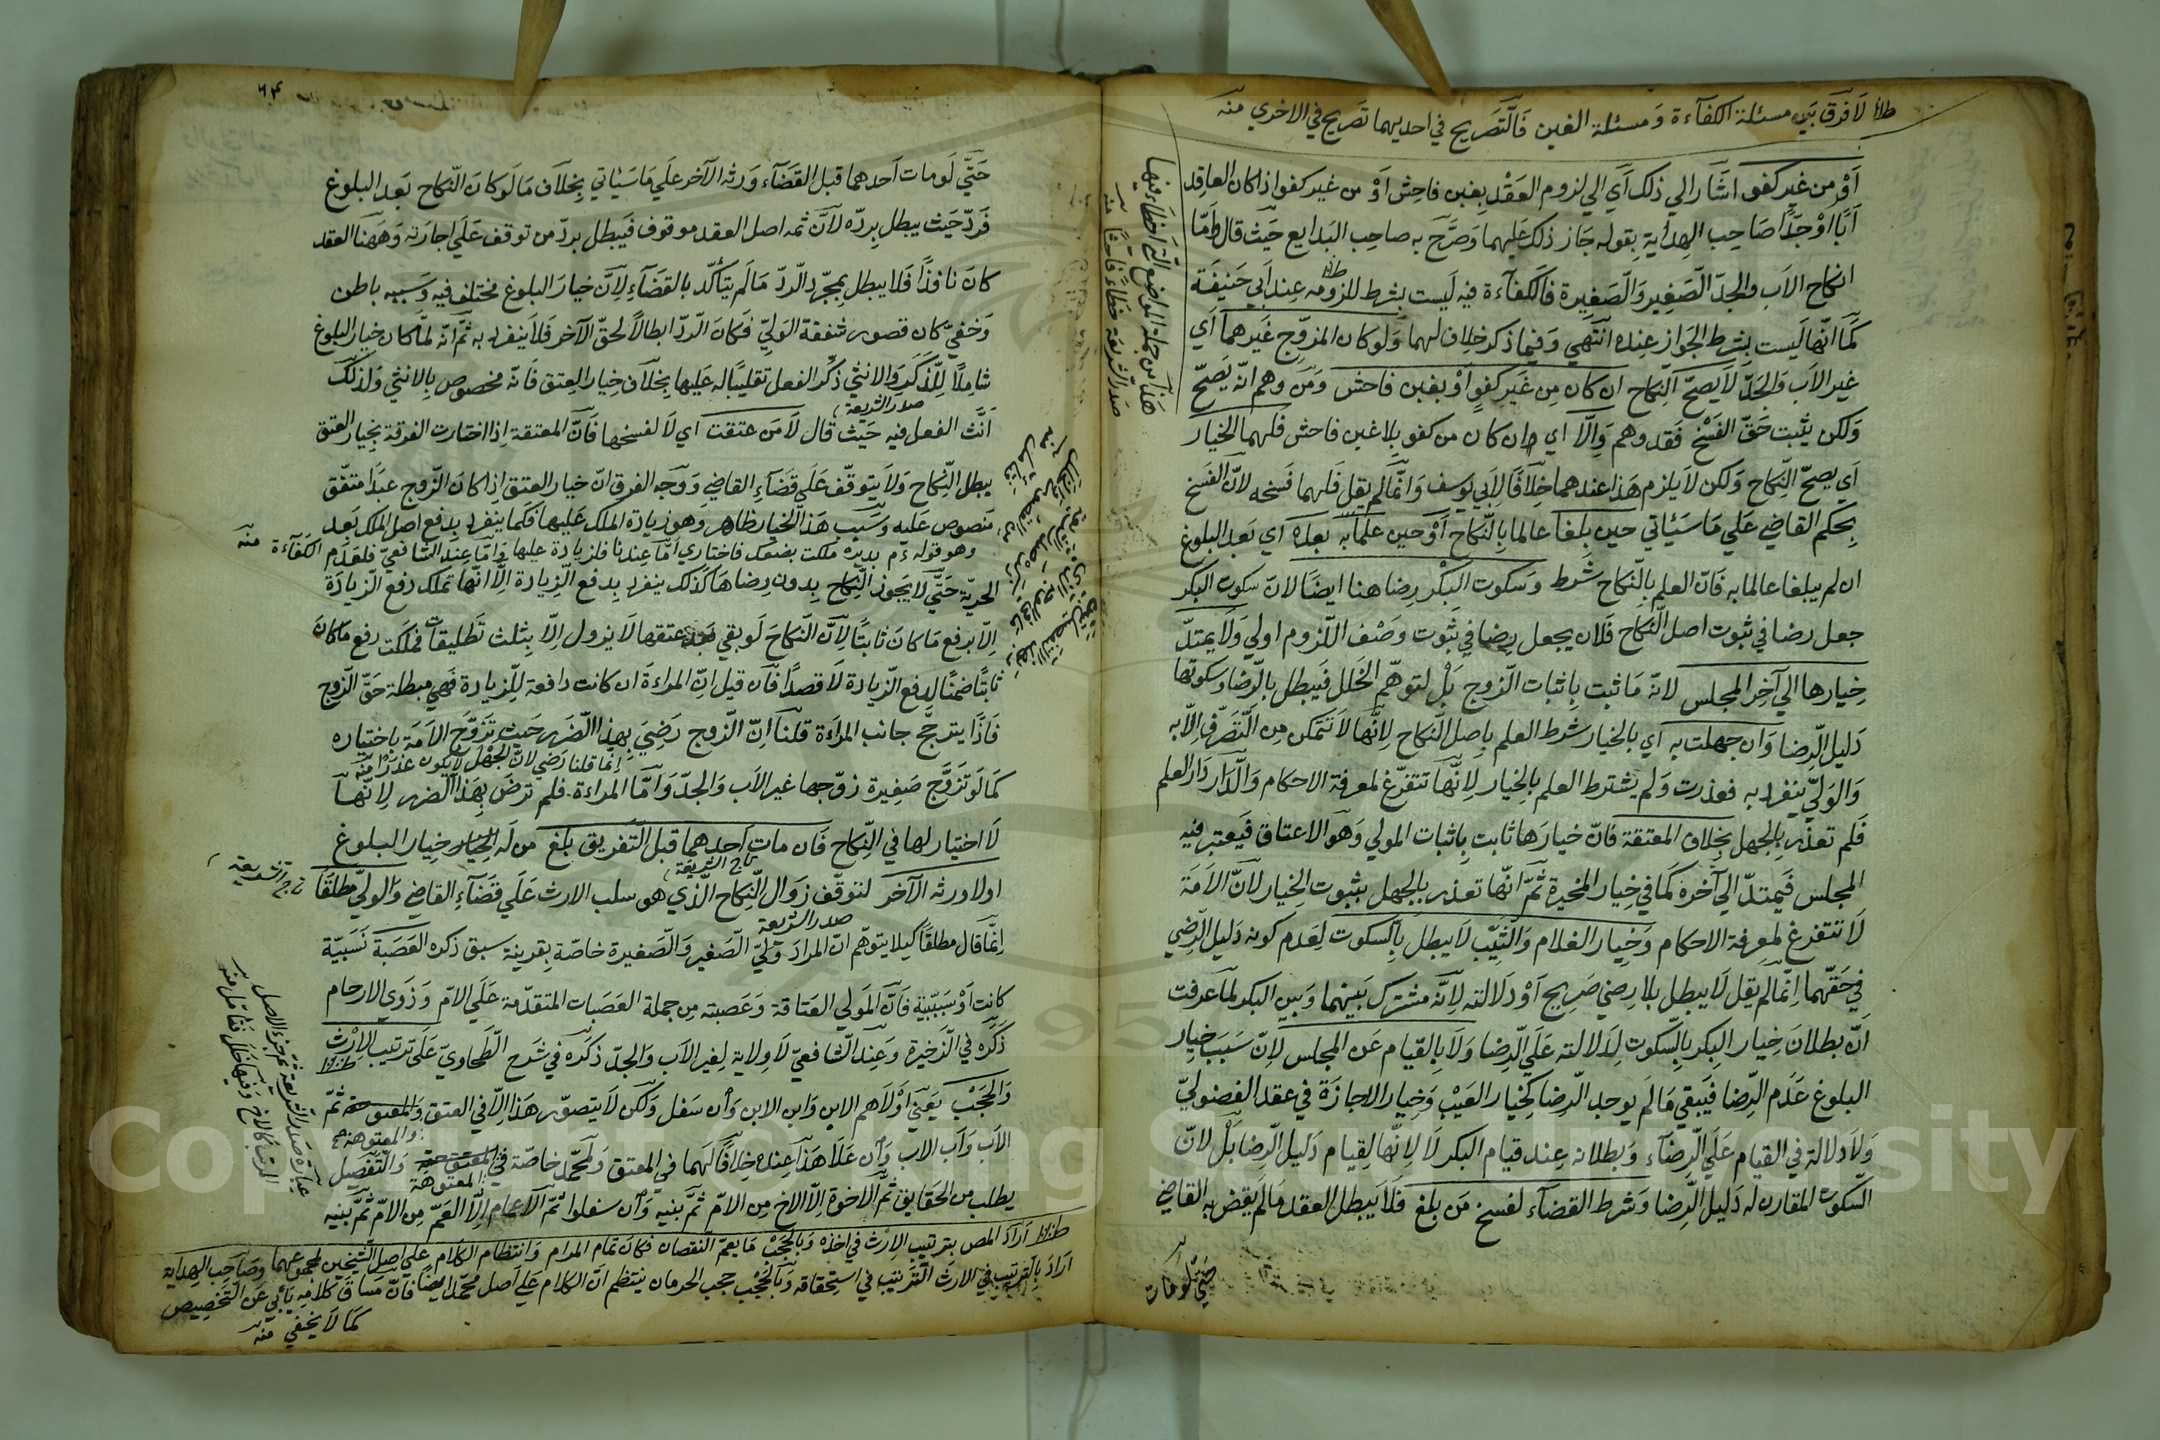 طلا لا فرق بين مسئلة الكفآءة ومسئلة الغبن فالتصريح في احديهما تصريح في الاخري منه
أو من غير كفو اشار الي ذلك أي الي لزوم العقد بغبن فاحش أو من غير كفو اذا كان العاقد
أبا او جدا صاحب الهداية بقوله جاز ذلك عليهما وصرح به صاحب البدايع حيث قال واما
انكاح الاب والجد الصغير والصغيرة فالكفآءة فيه ليست بشرط للزومه عند أبي حنيفة
كما انها ليست بشرط الجواز عنده انتهي وفيما ذكر خلاف لهما ولو كان المزوج غيرهما أي
غير الاب والجد لا يصح النكاح ان كان من غير كفو أو بغبن فاحش ومن وهم انه يصح
ولكن يثبت حق الفسخ فقد وهم والا اي وان كان من كفو بلا غبن فاحش فلهما الخيار
أي يصح النكاح ولكن لا يلزم هذا عندهما خلافا لابي يوسف وانما لم يقل فلهما فسخه لان الفسخ
بحكم القاضي علي ما سيأتي حين بلغا عالما بالنكاح أو حين علما به بعده اي بعد البلوغ
ان لم يبلغا عالما به فان العلم بالنكاح شرط وسكوت البكر رضا هنا ايضا لان سكوت البكر
جعل رضا في ثبوت اصل النكاح فلان يجعل رضا في ثبوت وصف اللزوم اولي ولا يمتد
خيارها الي آخر المجلس لانه ما ثبت باثبات الزوج بل لتوهم الخلل فيبطل بالرضا وسكوتها
دليل الرضا وان جهلت به أي بالخيار شرط العلم باصل النكاح لانها لا تتمكن من التصرف الا به
والولي ينفرد به فعذرت ولم يشترط العلم بالخيار لانها تتفرغ لمعرفة الاحكام والدار دار العلم
فلم تعذر بالجهل بخلاف المعتقة فان خيارها ثابت باثبات المولي وهو الاعتاق فيعتبر فيه
المجلس فيمتد الي آخره كما في خيار المخيرة ثم انها تعذر بالجهل بثبوت الخيار لان الامة
لا تتفرغ لمعرفة الاحكام وخيار الغلام والثيب لا يبطل بالسكوت لعدم كونه دليل الرضي
في حقهما انما لم يقل لا يبطل بلا رضي صريح أو دلالته لانه مشترك بينهما وبين البكر لما عرفت
ان بطلان خيار البكر بالسكوت لدلالته علي الرضا ولا بالقيام عن المجلس لان سبب خيار
البلوغ عدم الرضا فيبقي ما لم يوجد الرضا كخيار العيب وخيار الاجازة في عقد الفضولي
ولا دلالة في القيام علي الرضاء وبطلانه عند قيام البكر لا لانها لقيام دليل الرضا بل لان
السكوت المقارن له دليل الرضا وشرط القضآء لفسخ من بلغ فلا يبطل العقد ما لم يقض به القاضي
حتي لو مات
هذا من جملة المواضع التي اخطاء فيها
صدر الشريعة خطاء فاحشا منه
٦٤
حتي لو مات احدهما قبل القضآء ورثه الآخر علي ما سيأتي بخلاف ما لو كان النكاح بعد البلوغ
فرد حيث يبطل برده لان ثمه اصل العقد موقوف فيبطل برد من توقف علي اجازته وههنا العقد
كان نافذا فلا يبطل بمجرد الرد ما لم يتأكد بالقضآء لان خيار البلوغ مختلف فيه وسببه باطن
وخفي كان قصور شفقة الولي فكان الرد ابطالا لحق الآخر فلا ينفرد به ثم انه لما كان خيار البلوغ
شاملا للذكر والانثي ذكر الفعل تغليبا له عليها بخلاف خيار العتق فانه مخصوص بالانثي ولذلك
صدر الشريعة
انث الفعل فيه حيث قال لا من عتقت اي لا لفسخها فان المعتقة اذا اختارت الفرقة بخيار العتق
يبطل النكاح ولا يتوقف علي قضآء القاضي ووجه الفرق ان خيار العتق اذا كان الزوج عبدا متفق
منصوص عليه وسبب هذا الخيار ظاهر وهو زيادة الملك عليها فكما ينفرد بدفع اصل الملك بعد
وهو قوله عم بريره ملكت بضعك فاختاري أما عندنا فلزيادة عليها واما عند الشافعي فلعدم الكفآءة منه
الحرية حتي لا يجوز النكاح بدون رضاها كذلك ينفرد بدفع الزيادة الا انها تملك دفع الزيادة
الا برفع ما كان ثابتا لان النكاح لو بقي بعد عتقها لا يزول الا بثلث تطليقات فملكت رفع ما كان
ثابتا ضمنا لدفع الزيادة لا قصدا فان قيل ان المراءة ان كانت دافعة للزيادة فهي مبطلة حق الزوج
فاذا يترجح جانب المراءة قلنا ان الزوج رضي بهذا الضرر حيث تزوج الامة باختياره
انما قلنا رضي لان الجهل لا يكون عذرا منه
كما لو تزوج صغيرة زوجها غير الاب والجد واما المراءة فلم ترض بهذا الضرر لانها
لا اختيار لها في النكاح فان مات احدهما قبل التفريق بلغ من له الخيار خيار البلوغ
تاج الشريعة
اولا ورثه الآخر لتوقف زوال النكاح الذي هو سلب الارث علي قضآء القاضي والولي مطلقا
صدر الشريعة
انما قال مطلقا كيلا يتوهم ان المراد ولي الصغير والصغيرة خاصة بقرينة سبق ذكره العصبة نسبية
كانت أو سببية فان المولي العتاقة وعصبته من جملة العصبات المتقدمة علي الام وذوي الارحام
ذكره في الذخيرة وعند الشافعي لا ولاية لغير الاب والجد ذكره في شرح الطحاوي علي ترتيب الارث
والحجب يعني اولاهم الابن وابن الابن وأن سفل ولكن لا يتصور هذا الا في العتق والمعتوهة ثم
الاب وأب الاب وأن علا هذا عنده خلافا لهما في المعتق ولمحمد خاصة في المعتوهة والتفصيل
يطلب من الحقايق ثم الاخوة الا الاخ من الام ثم بنيه وأن سفلوا ثم الاعمام الا العم من الام ثم بنيه
اراد المص بترتيب الارث في اخذه وبالحجب ما يعم النقصان فكان تمام المرام وانتظام الكلام علي اصل الشيخين لمجموعهما وصاحب الهداية
اراد بالترتيب في الارث الترتيب في استحقاقه وبالحجب حجب الحرمان ينتظم ان الكلام علي اصل محمد ايضا فان مساق كلامه يأبي عن التخصيص
كما لا يخفي منه